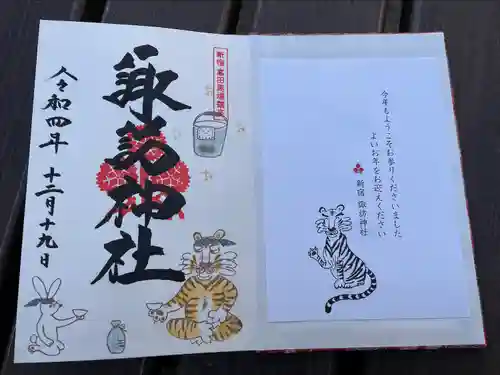 新宿 高田馬場鎮座
諏訪神社
令和四年 十二月十九日
今年もようこそお参りくださいました
よいお年をお迎えください
新宿 諏訪神社